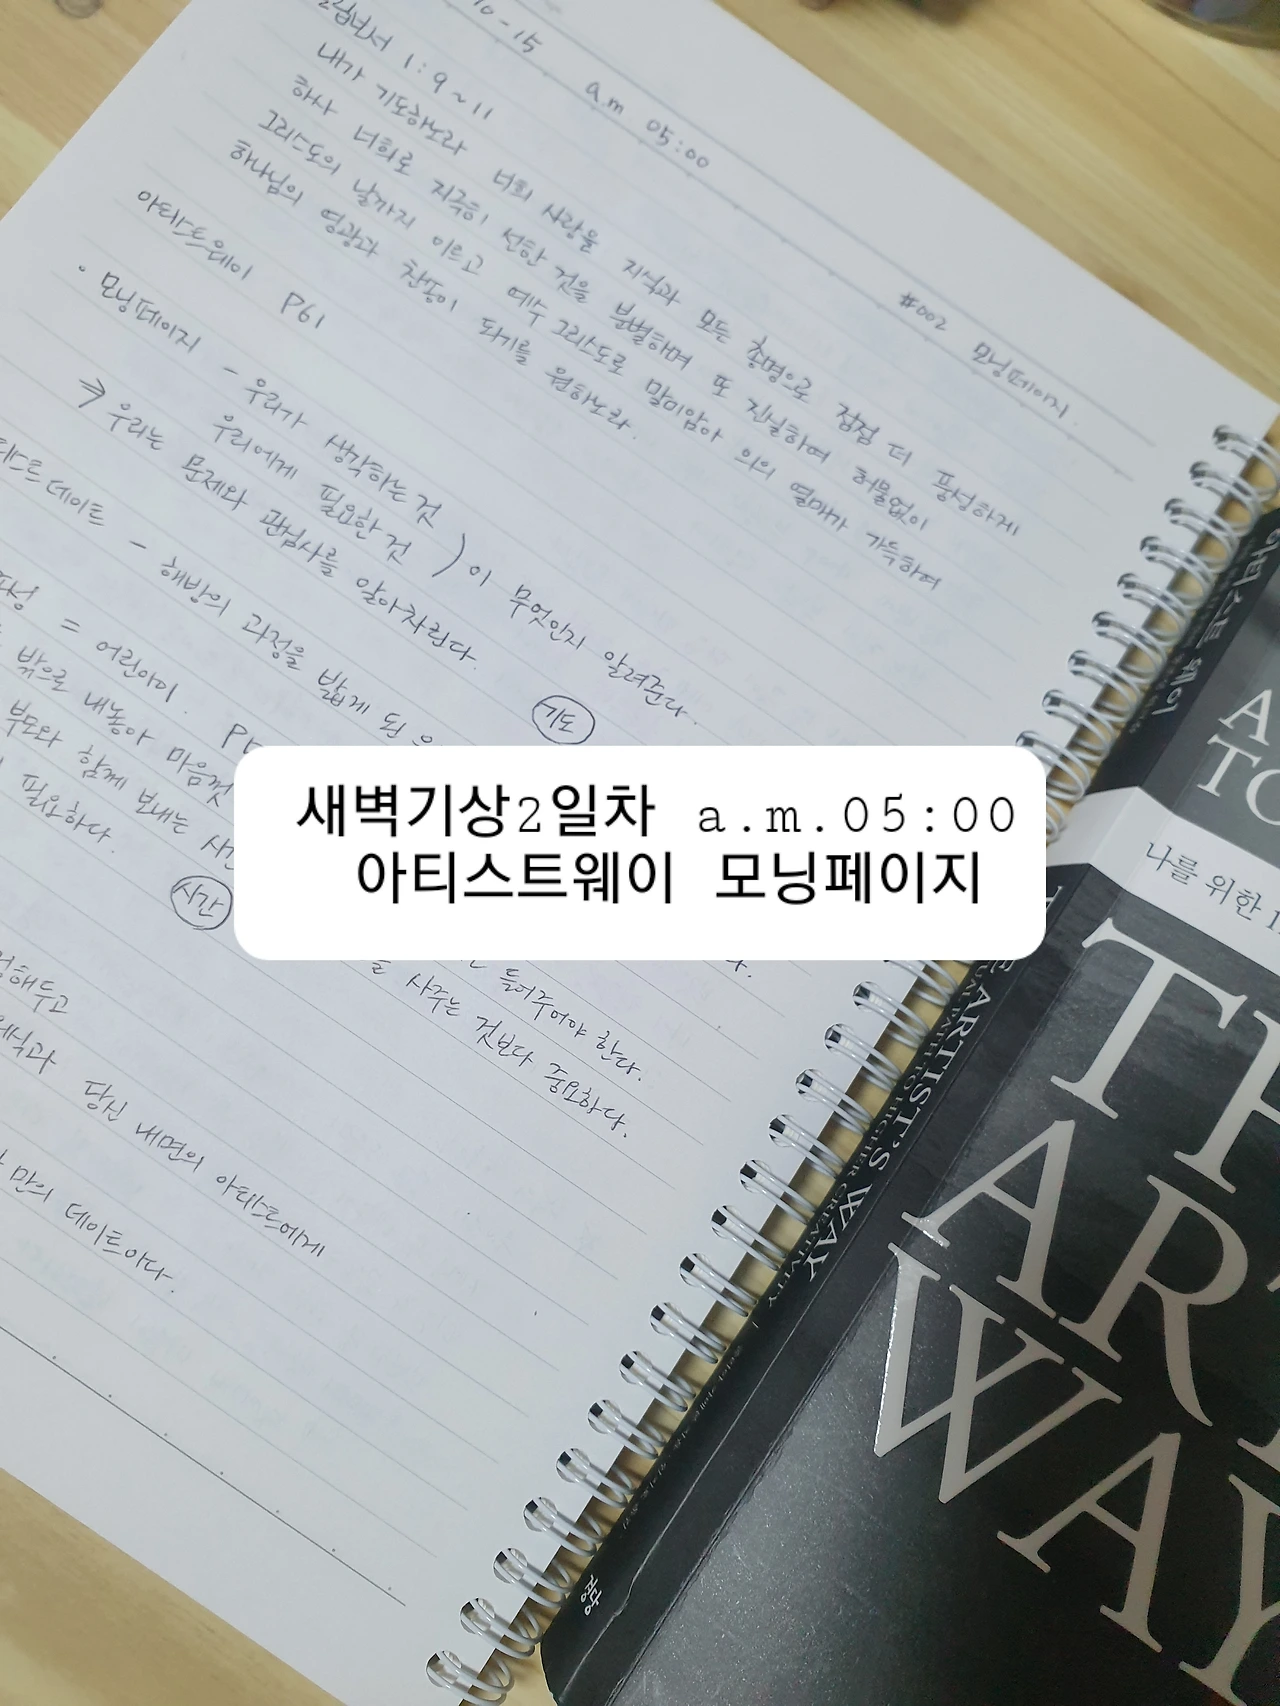 10-15 a.m 05:00
#002 모닝페이지.
1:9~11
내가 기도하노라 너희 사랑을 지식과 모든 총명으로 점점 더 풍성하게
하사 너희로 지극히 선한 것을 분별하며 또 진실하여 허물없이
그리스도의 날까지 이르고 예수 그리스도로 말미암아 의의 열매가 가득하여
하나님의 영광과 찬송이 되기를 원하노라.
아티스트웨이 P61
· 모닝페이지 - 우리가 생각하는 것
우리에게 필요한 것 ) 이 무엇인지 알려준다.
⇒ 우리는 문제와 관심사를 알아차린다.
데이트 - 해방의 과정을 밟게 된
기도
= 어린아이.
밖으로 내놓아 마음껏
부모와 함께 보내는
필요하다.
시간
들어주어야 한다.
사주는 것보다 중요하다.
당신 내면의 아티스트에게
만의 데이트이다.
새벽기상2일차 a.m.05:00
아티스트웨이 모닝페이지
아티스트 웨이
나를 위한
THE ARTIST'S WAY
A SPIRITUAL PATH TO HIGHER CREATIVITY
경당
TH
ART
WAY